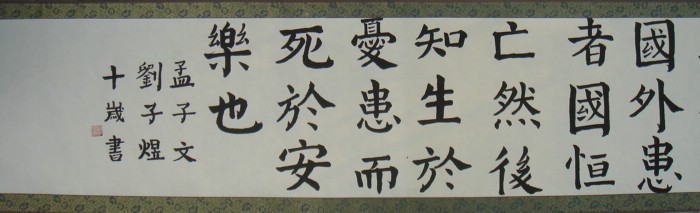 國外患
者國恒
亡然後
知生於
憂患而
死於安
樂也
孟子文
劉子煜
十歲書